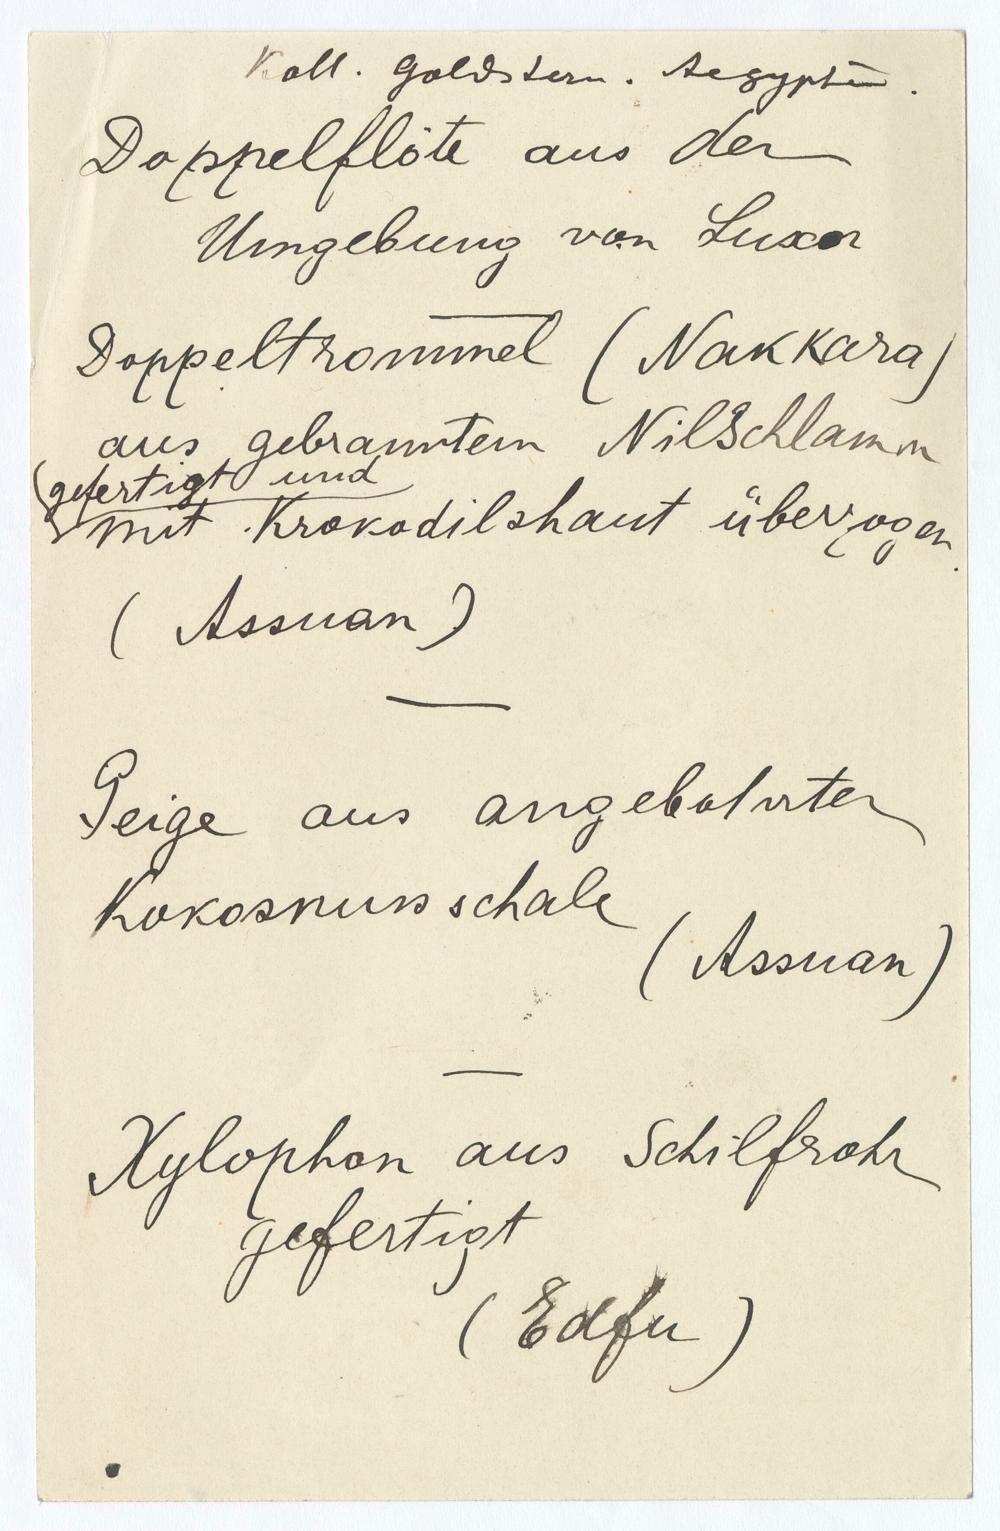 Koll. Goldstern. Aegypten.
Doppelflöte aus der
Umgebung von Luxor
Doppeltrommel (Nakkara)
aus gebranntem NilSchlamm
(gefertigt und
mit Krokodilshaut überzogen.
(Assuan)
Geige aus angebohrter
Kokosnussschale
(Assuan)
Xylophon aus Schilfrohr
gefertigt
(Edfu)